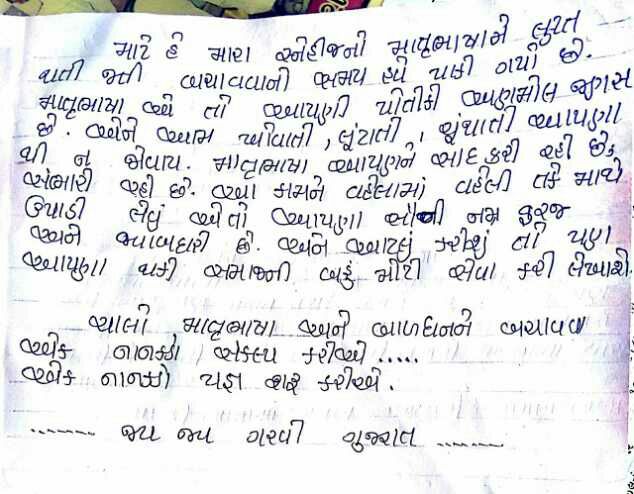 માટે હે મારા સ્નેહીજનો માતૃભાષાને લુપ્ત
થતી જતી બચાવવાનો સમય હવે પાકી ગયો છે.
માતૃભાષા એ તો આપણી પોતીકી અણમોલ જણસ
છે. એને આમ ખોવાતી, લૂંટાતી, ચૂંથાતી આપણા
થી ન જોવાય. માતૃભાષા આપણને સાદ કરી રહી છે
સંભારી રહી છે. આ કામને વહેલામાં વહેલી તકે માથે
ઉપાડી લેવું એ તો આપણા સૌની નમ્ર ફરજ
અને જવાબદારી છે. અને આટલું કરીશું તો પણ
આપણા થકી સમાજની બહુ મોટી સેવા કરી લેખાશે.
ચાલો માતૃભાષા અને બાળધનને બચાવવા
એક નાનકડો સંકલ્પ કરીએ .....
એક નાનકડો યજ્ઞ શરૂ કરીએ.
....... જય જય ગરવી ગુજરાત .......